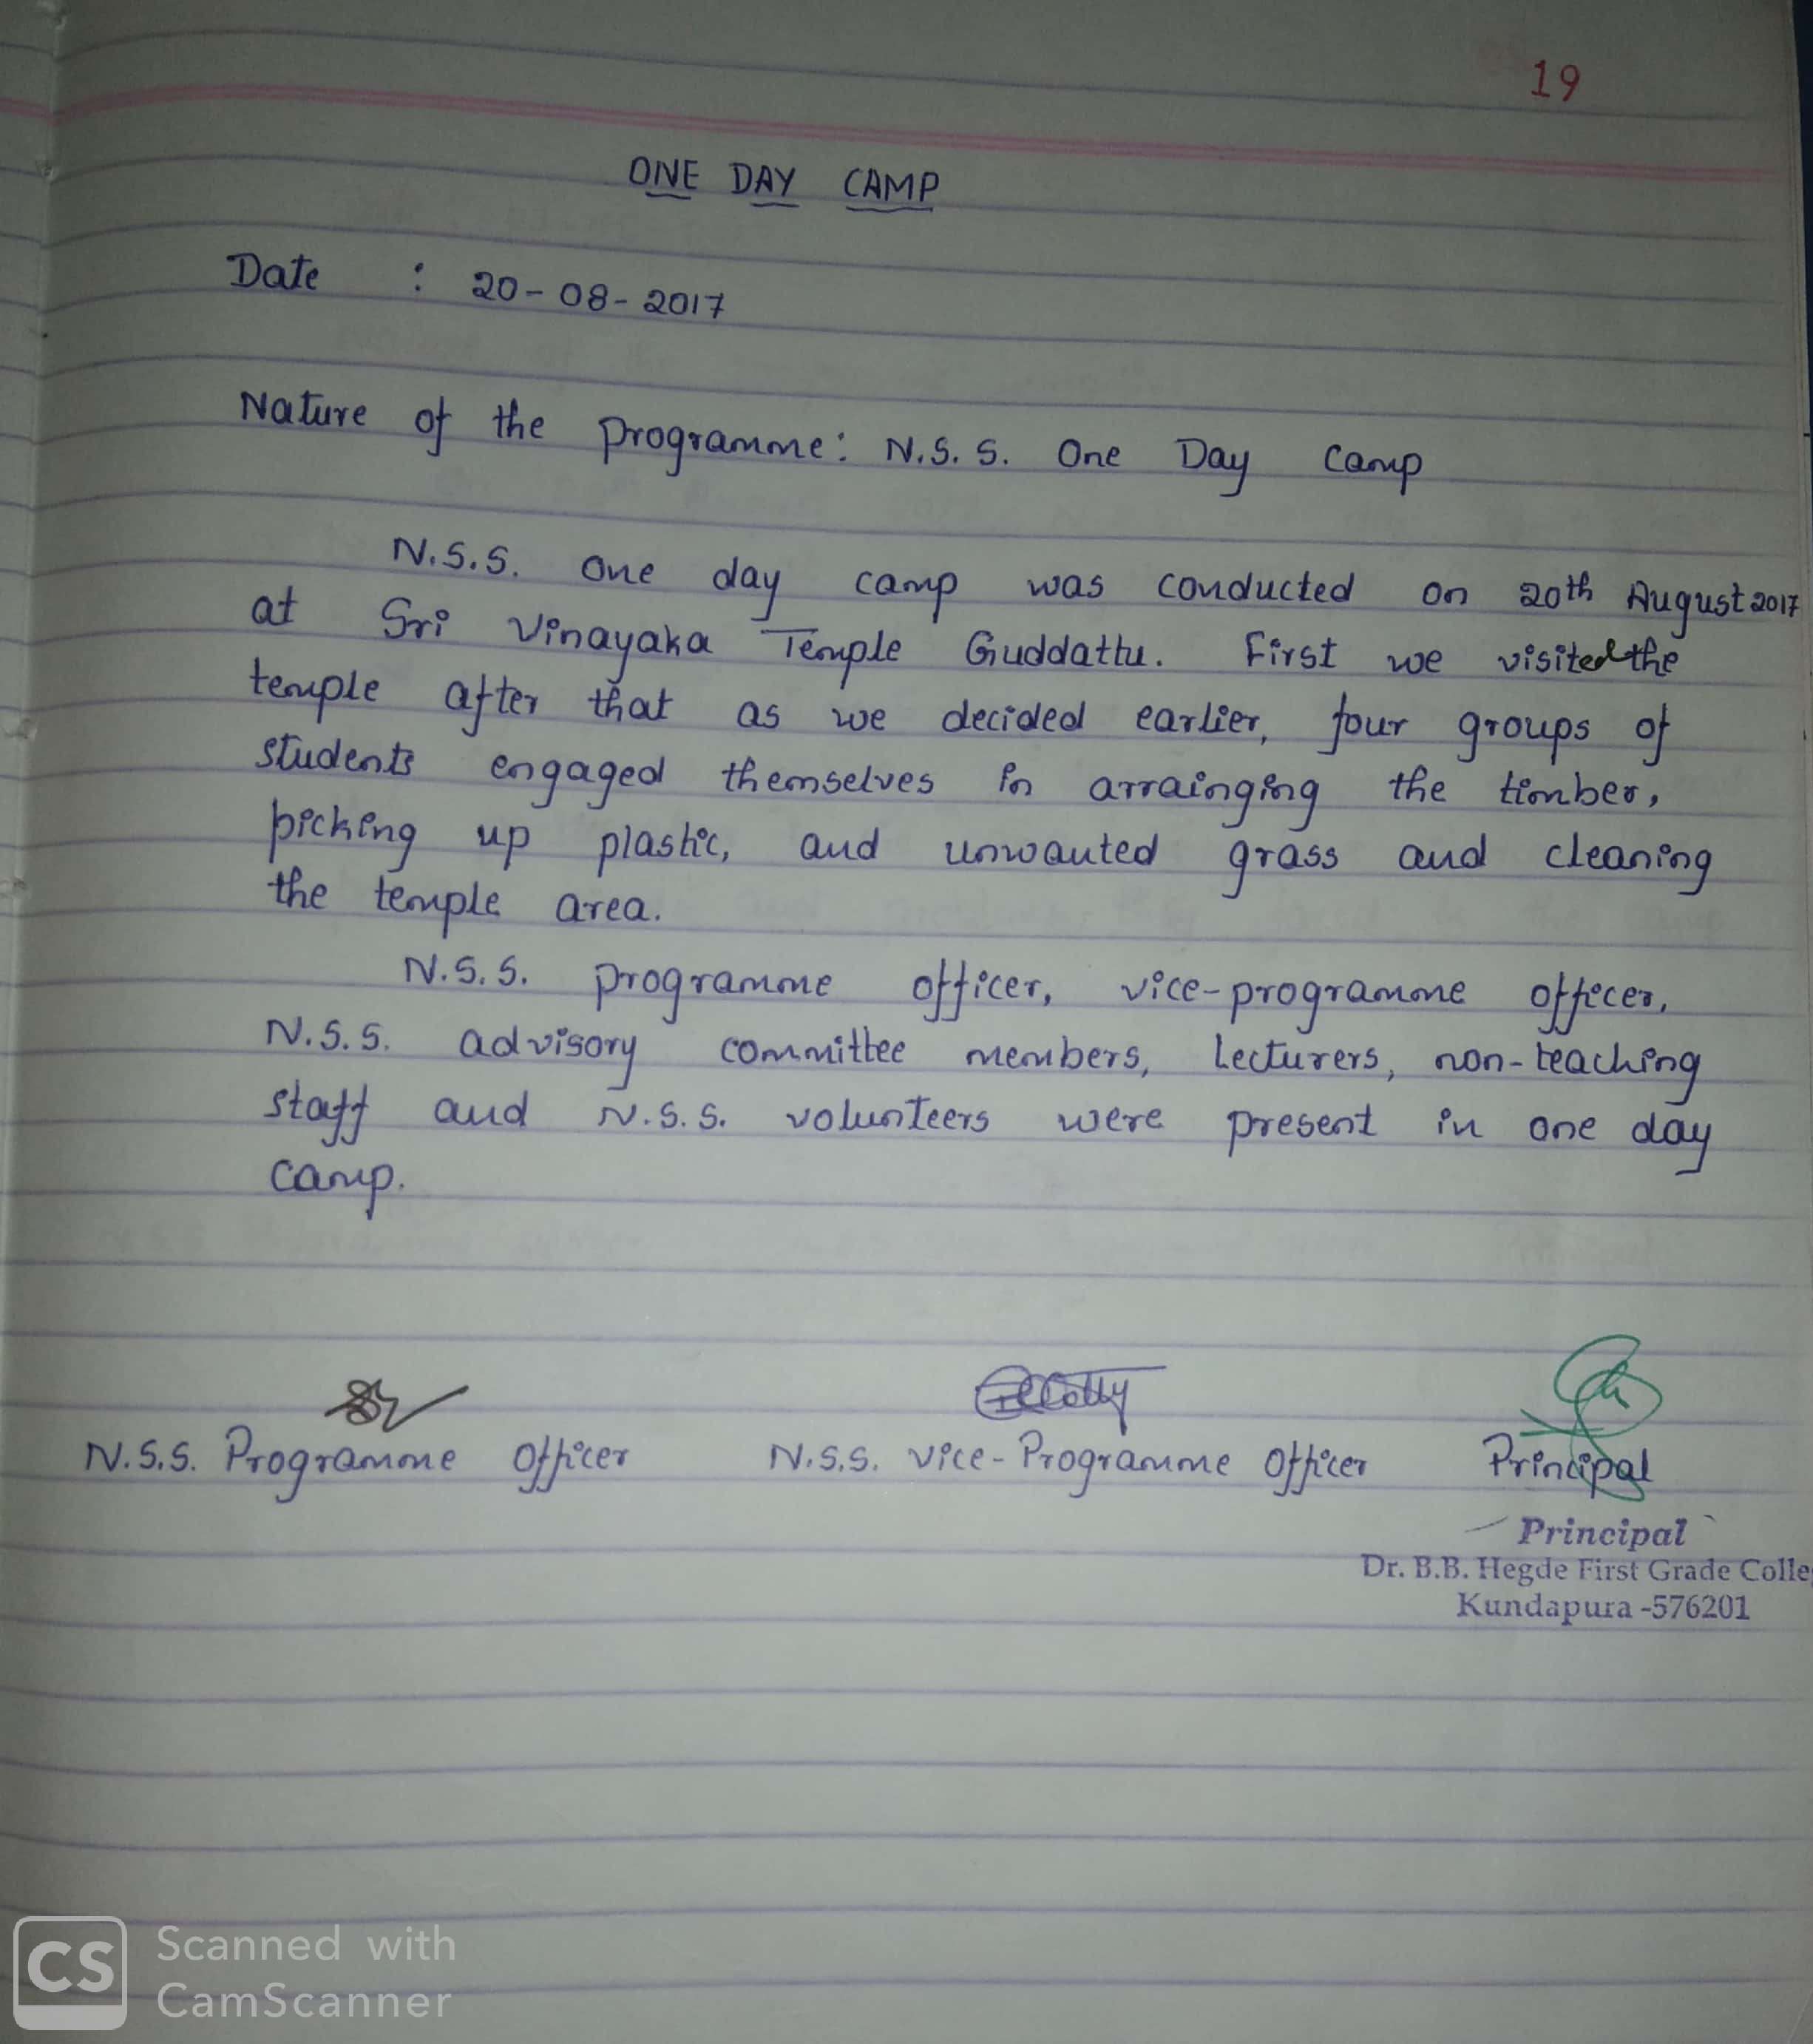 19
ONE DAY CAMP
Date : 20-08-2017
Nature of the programme: N.S.S. One Day Camp
N.S.S. One day camp was conducted on 20th August 2017
at Sri Vinayaka Temple Guddattu. First we visited the
temple after that as we decided earlier, four groups of
students engaged themselves in arrainging the timber,
picking up plastic, and unwanted grass and cleaning
the temple area.
N.S.S. programme officer, vice-programme officer,
N.S.S. advisory committee members, Lecturers, non-teaching
staff and N.S.S. volunteers were present in one day
camp.
N.S.S. Programme Officer N.S.S. Vice-Programme Officer Principal
Principal
Dr. B.B. Hegde First Grade Colle
Kundapura -576201
CS Scanned with
CamScanner